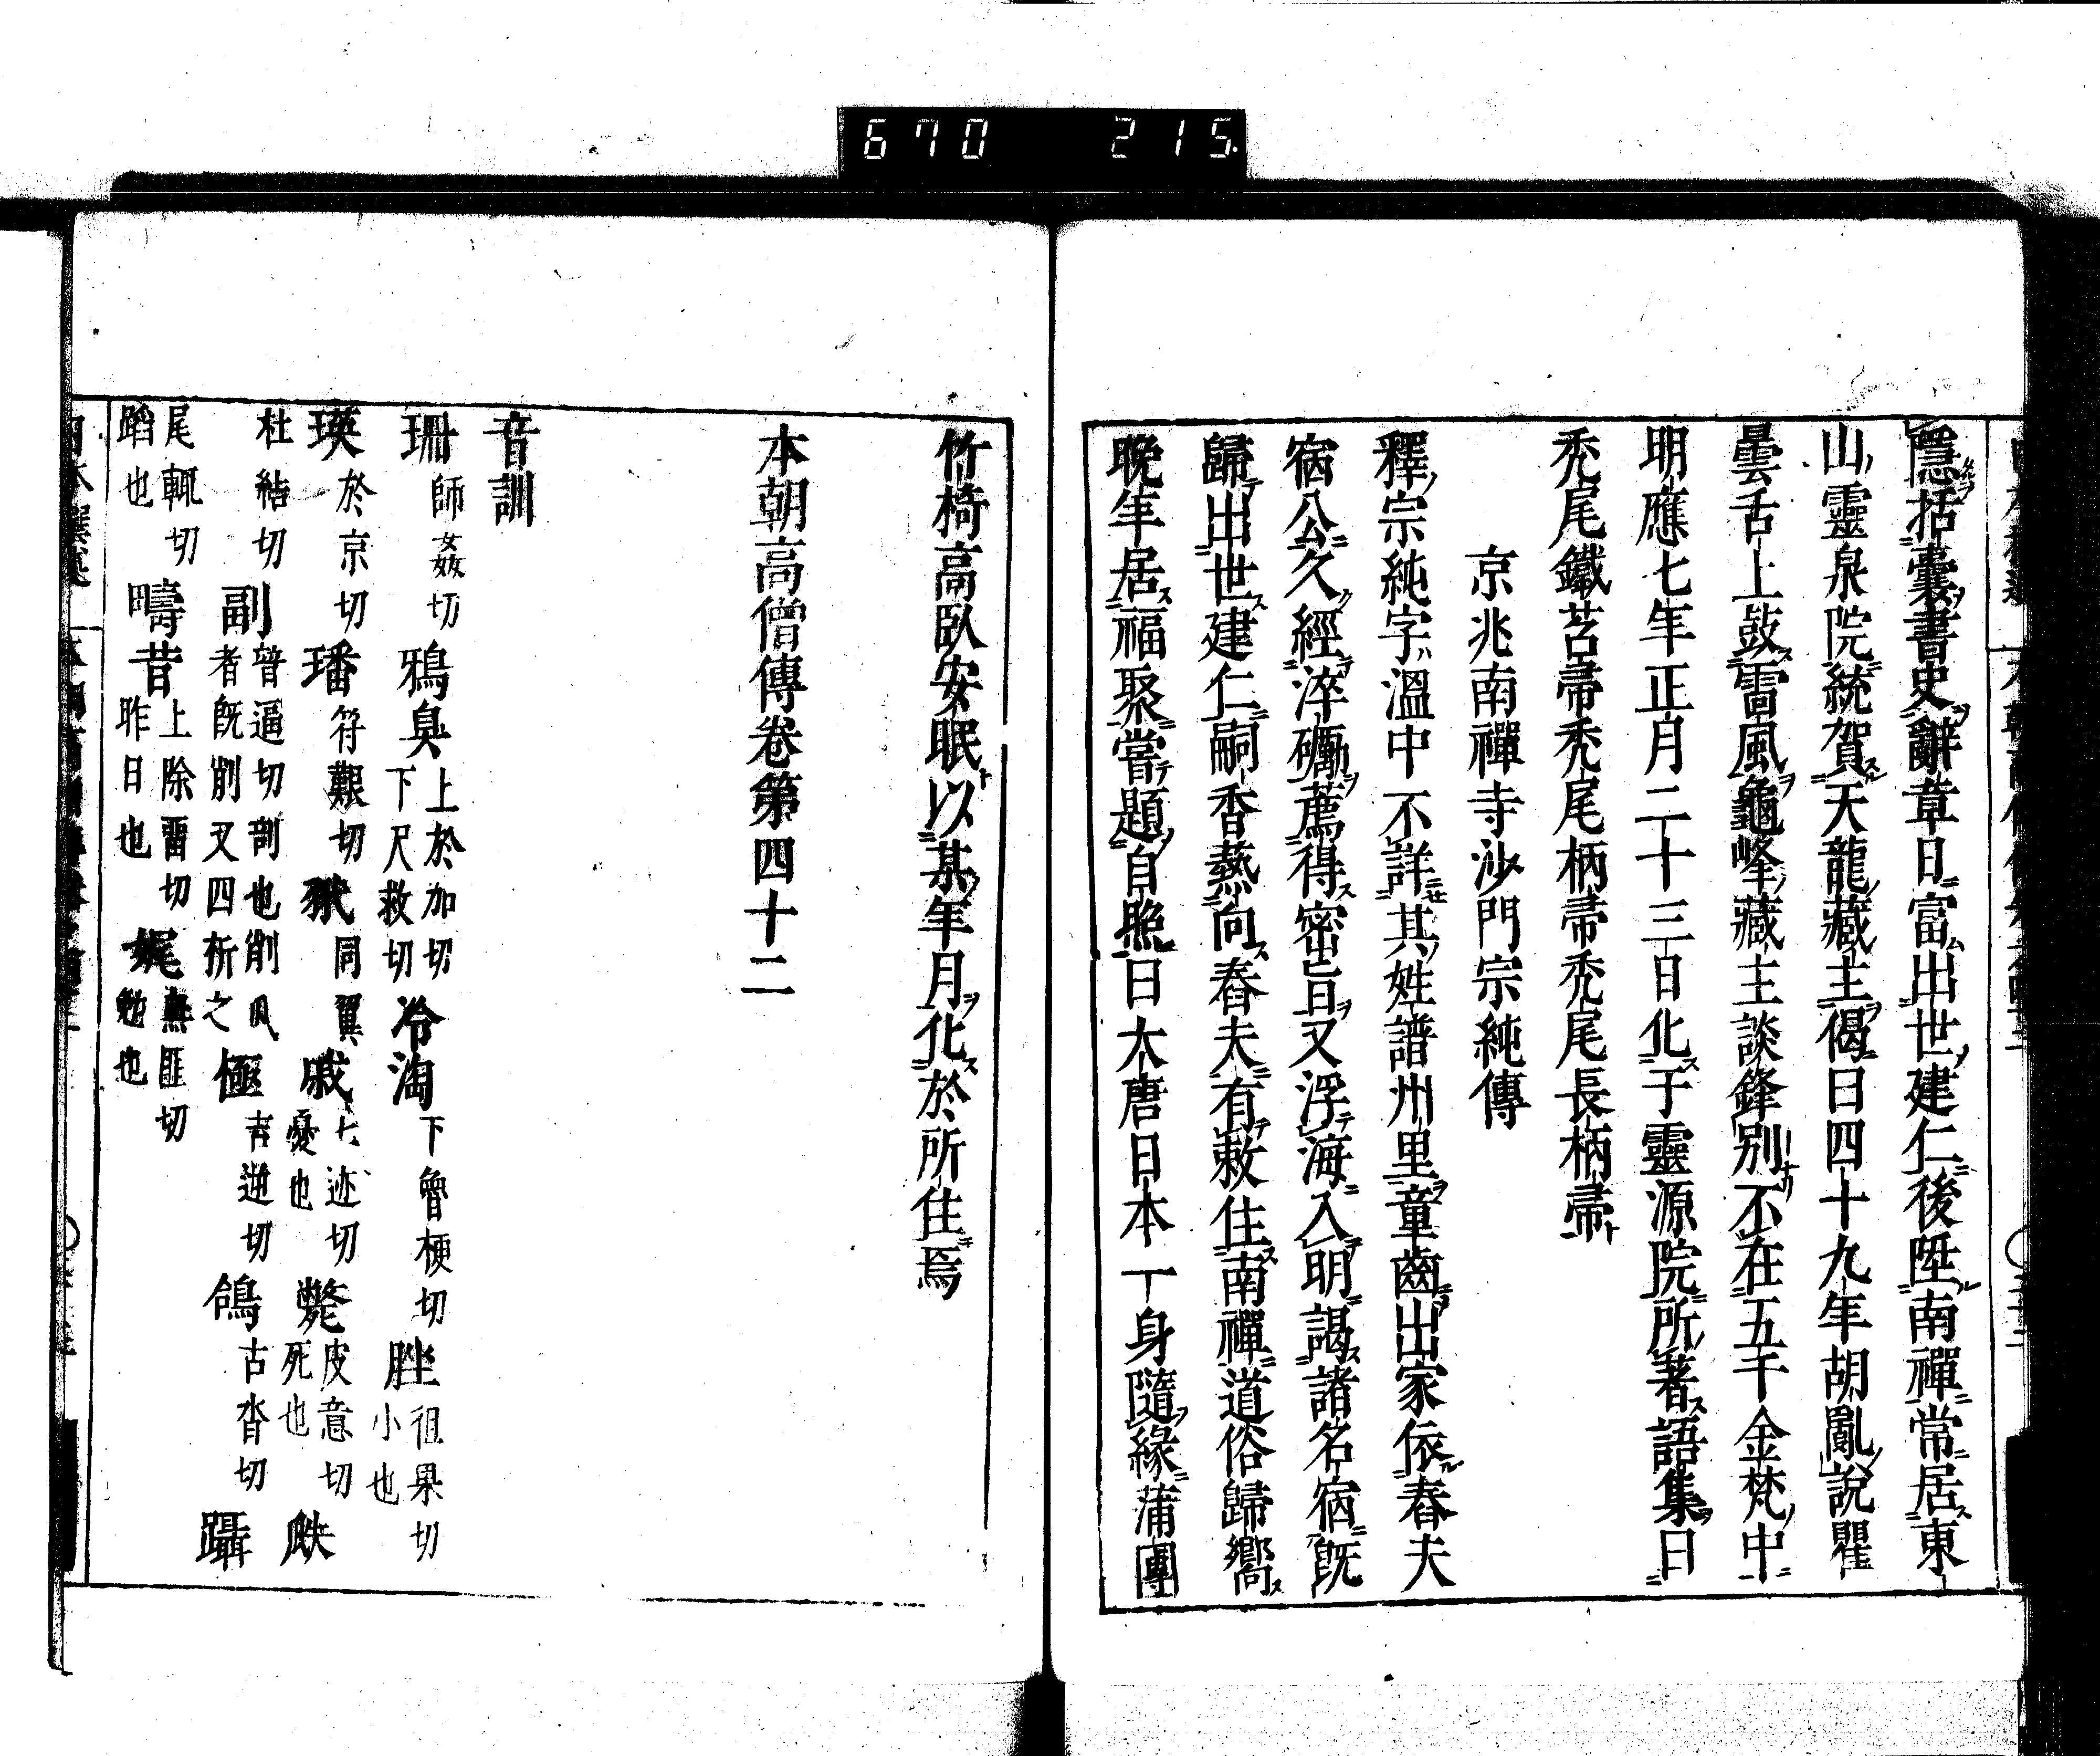 670 215.
隱括囊書史辭章日富出世建仁後陞南禪常居東
山靈泉院統賀天龍藏主偈曰四十九年胡亂說瞿
曇舌上鼓雷風龜峰藏主談鋒別不在五千金梵中
明應七年正月二十三日化于靈源院所著語集曰
禿尾鐵苕帚禿尾柄帚禿尾長柄帚
京兆南禪寺沙門宗純傳
釋宗純字溫中不詳其姓譜州里童齒出家依春夫
宿公久經淬礪薦得密旨又浮海入明謁諸名宿既
歸出世建仁嗣香爇向春夫有敕住南禪道俗歸嚮
晚年居福聚嘗題自照曰大唐日本一身隨緣蒲團
竹椅高臥安眠以某年月化於所住焉
本朝高僧傳卷第四十二
音訓
珊 師姦切 鴉臭 上於加切下尺救切 冷淘 下魯梗切 脞 徂果切小也
瑛 於京切 璠 符艱切 同翼 戚 七迹切憂也 斃 皮意切死也 瓞
杜結切 副 普逼切剖也削瓜者既削又四析之 極 吉逆切 鴿 古沓切 躡
尾輒切蹈也 疇昔 上除畱切昨日也 娓 無匪切勉也